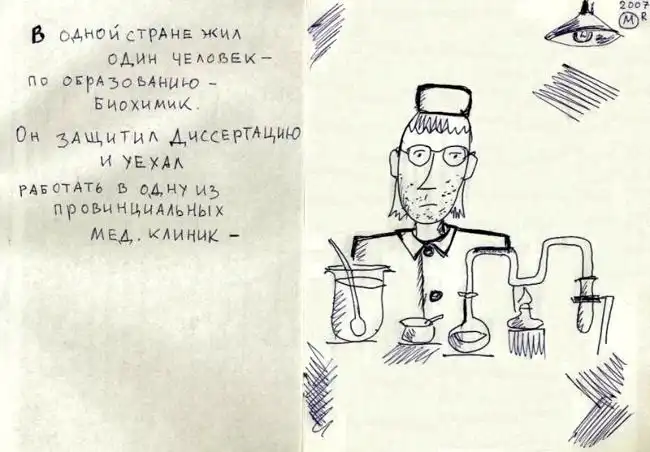 В ОДНОЙ СТРАНЕ ЖИЛ
ОДИН ЧЕЛОВЕК –
ПО ОБРАЗОВАНИЮ –
БИОХИМИК.
ОН ЗАЩИТИЛ ДИССЕРТАЦИЮ
И УЕХАЛ
РАБОТАТЬ В ОДНУ ИЗ
ПРОВИНЦИАЛЬНЫХ
МЕД. КЛИНИК –
2007
M R